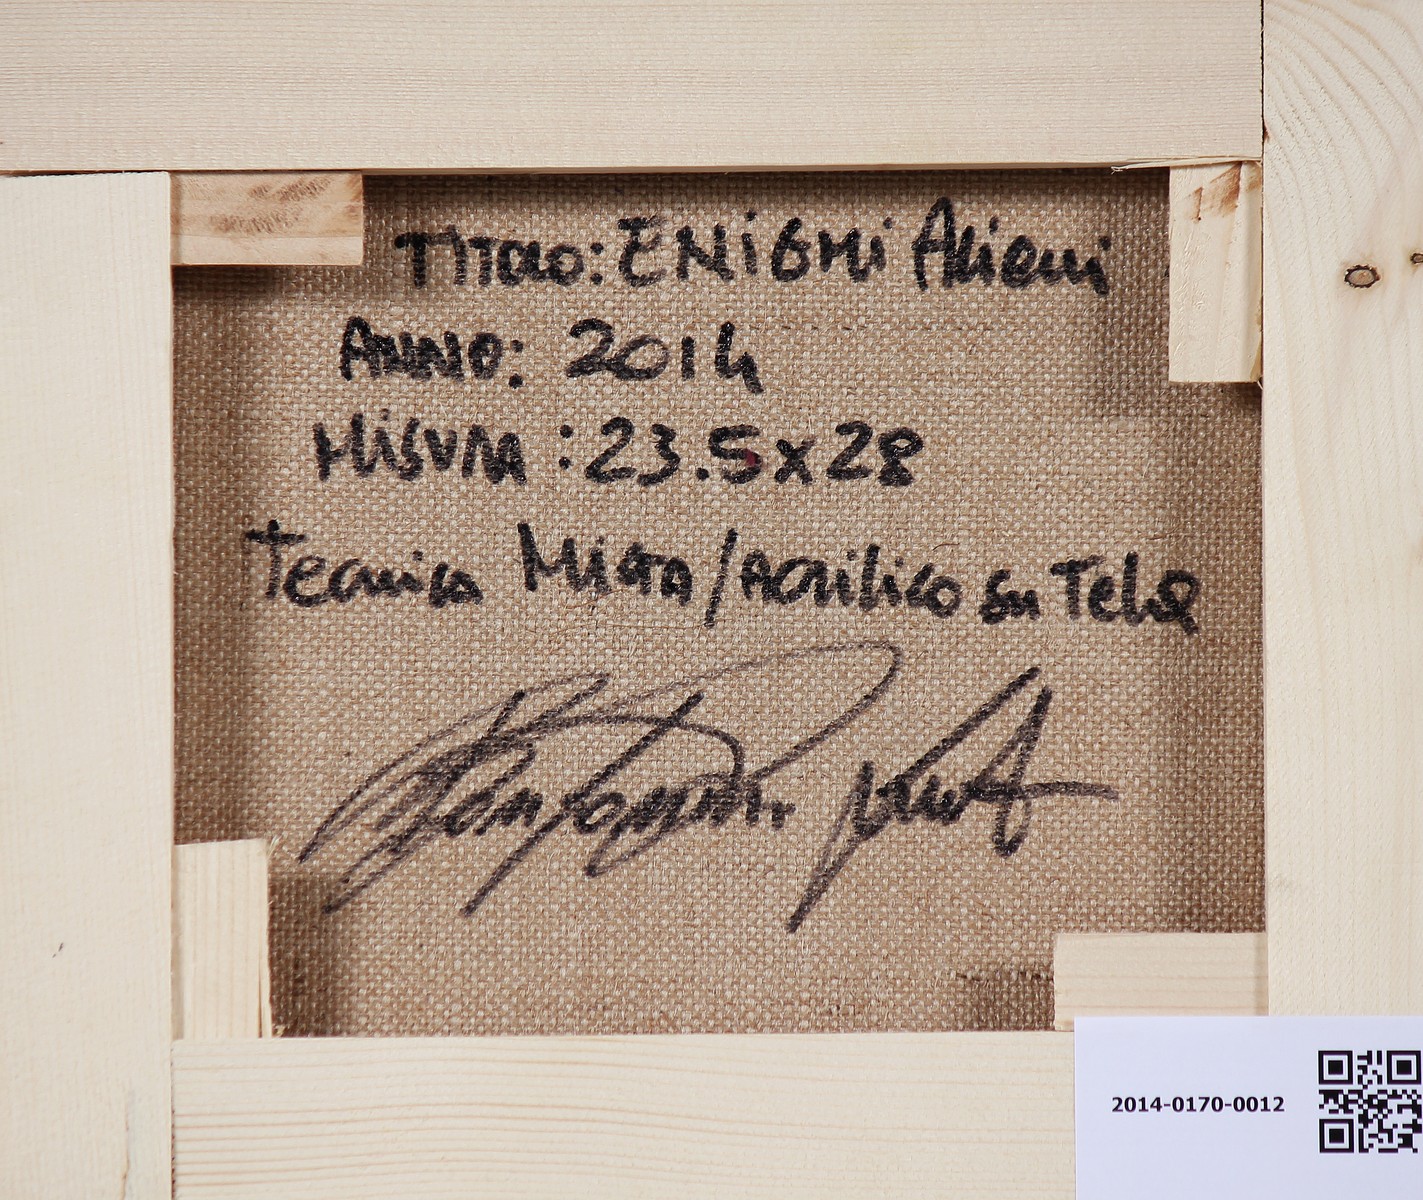 TITOLO: ENIGMi Alieni
ANNO: 2014
MiSURA: 23.5x28
Tecnica MiSTA/ACRilico su Tela
2014-0170-0012